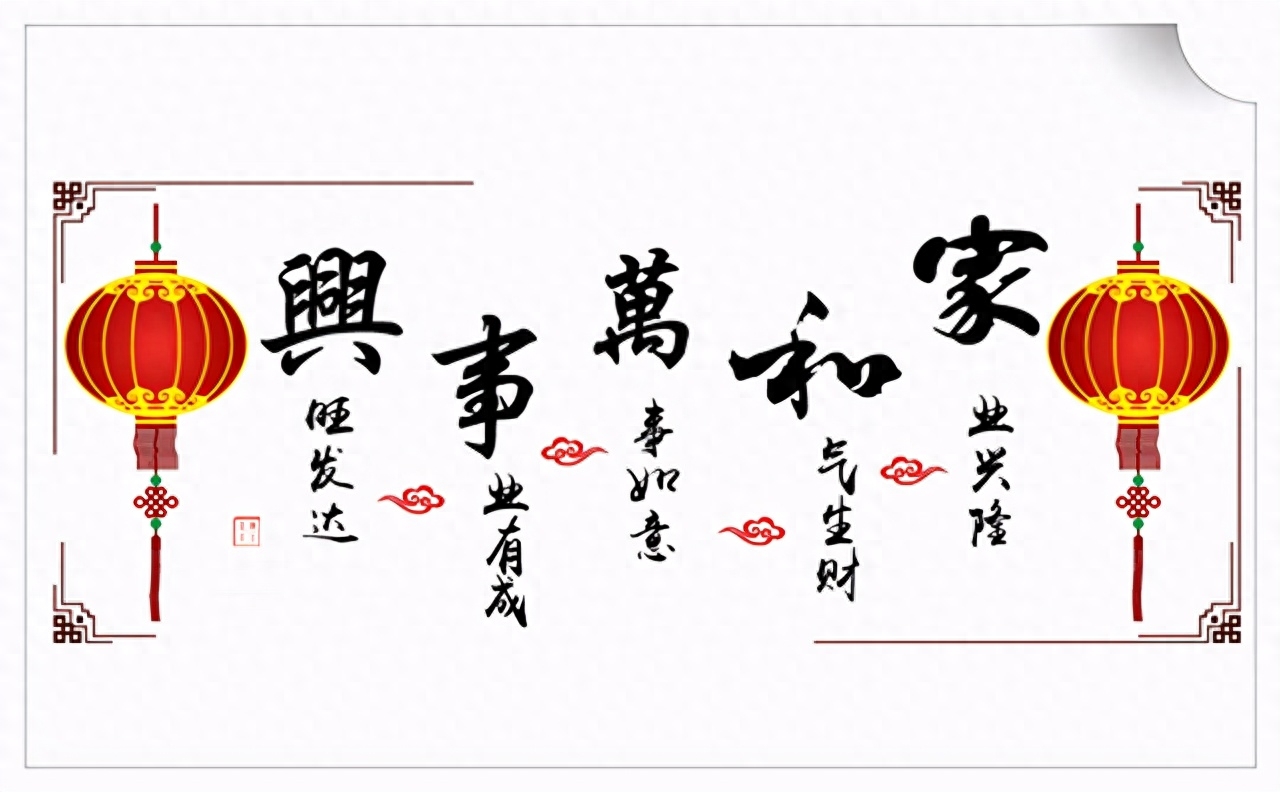 家和萬事興
家业兴隆
和气生财
萬事如意
事业有成
興旺发达